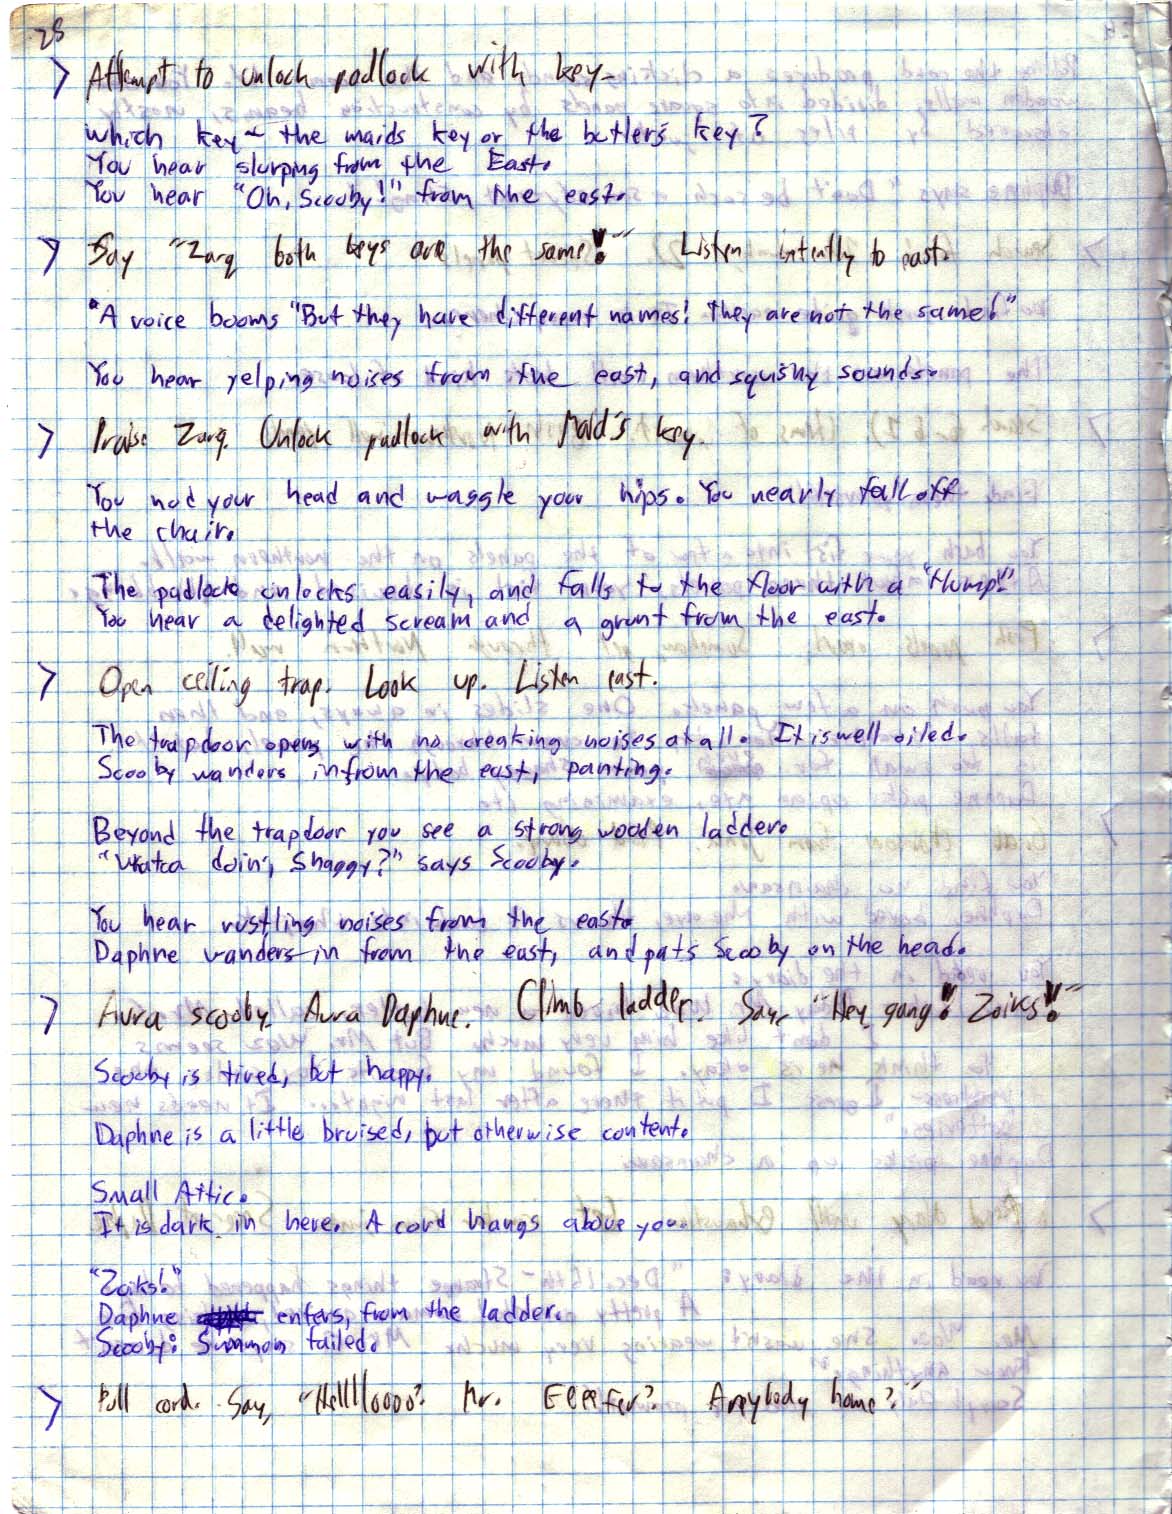 28
> Attempt to unlock padlock with key.
Which key - the maids key or the butler's key?
You hear slurping from the East.
You hear "Oh, Scooby!" from the east.
> Say "Zarq both keys are the same!" Listen intently to east.
"A voice booms "But they have different names! they are not the same!"
You hear yelping noises from the east, and squishy sounds.
> Praise Zarq. Unlock padlock with Maid's key.
You nod your head and waggle your hips. You nearly fall off
the chair.
The padlock unlocks easily, and falls to the floor with a "thump!"
You hear a delighted scream and a grunt from the east.
> Open ceiling trap. Look up. Listen east.
The trapdoor opens with no creaking noises at all. It is well oiled.
Scooby wanders in from the east, panting.
Beyond the trapdoor you see a strong wooden ladder.
"Whatca doin', Shaggy?" says Scooby.
You hear rustling noises from the east.
Daphne wanders in from the east, and pats Scooby on the head.
> Aura scooby. Aura Daphne. Climb ladder. Say, "Hey gang! Zoiks!"
Scooby is tired, but happy.
Daphne is a little bruised, but otherwise content.
Small Attic.
It is dark in here. A cord hangs above you.
"Zoiks!"
Daphne enters, from the ladder.
Scooby: Summon failed.
> Pull cord. Say, "Helllloooo? Mr. Anybody home?"